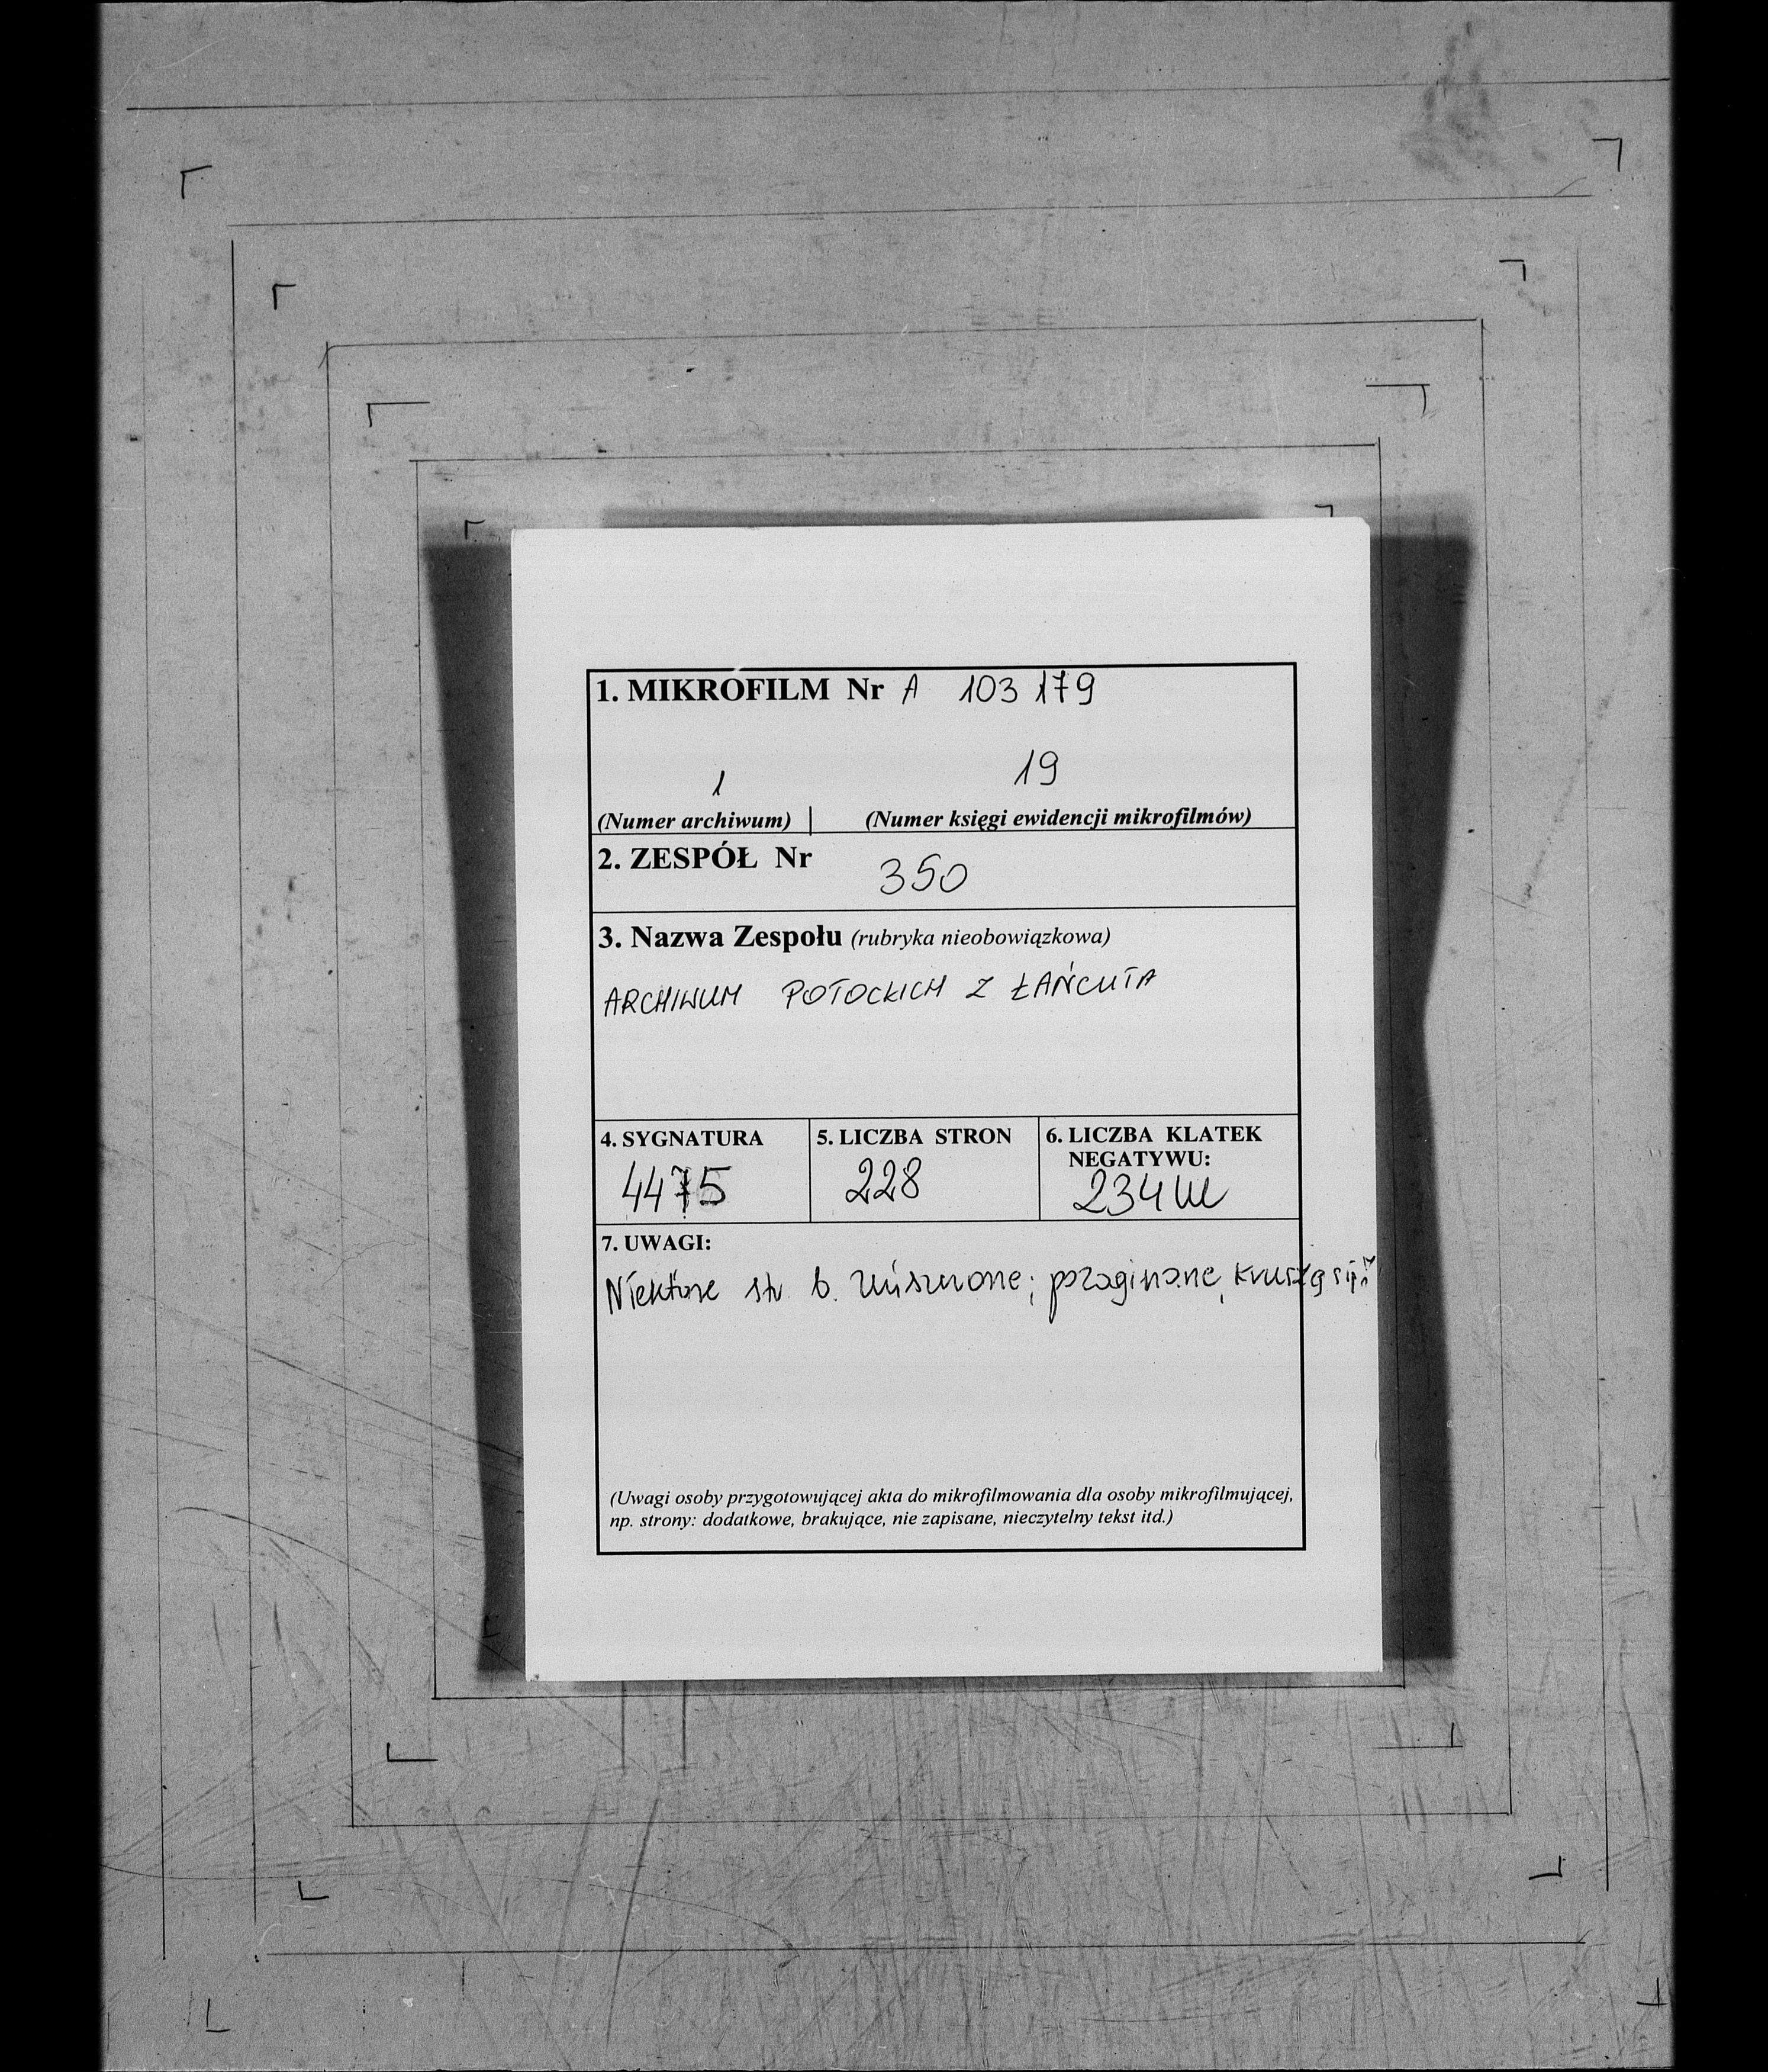 1. MIKROFILM Nr A 103 179
1 19
(Numer archiwum) (Numer księgi ewidencji mikrofilmów)
2. ZESPÓŁ Nr 350
3. Nazwa Zespołu (rubryka nieobowiązkowa)
ARCHIWUM POTOCKICH Z ŁAŃCUTA
4. SYGNATURA 5. LICZBA STRON 6. LICZBA KLATEK
NEGATYWU:
4475 228 234
7. UWAGI:
Niektóre str. b. zniszczone; pozaginane, kruszą się
(Uwagi osoby przygotowującej akta do mikrofilmowania dla osoby mikrofilmującej,
np. strony: dodatkowe, brakujące, nie zapisane, nieczytelny tekst itd.)